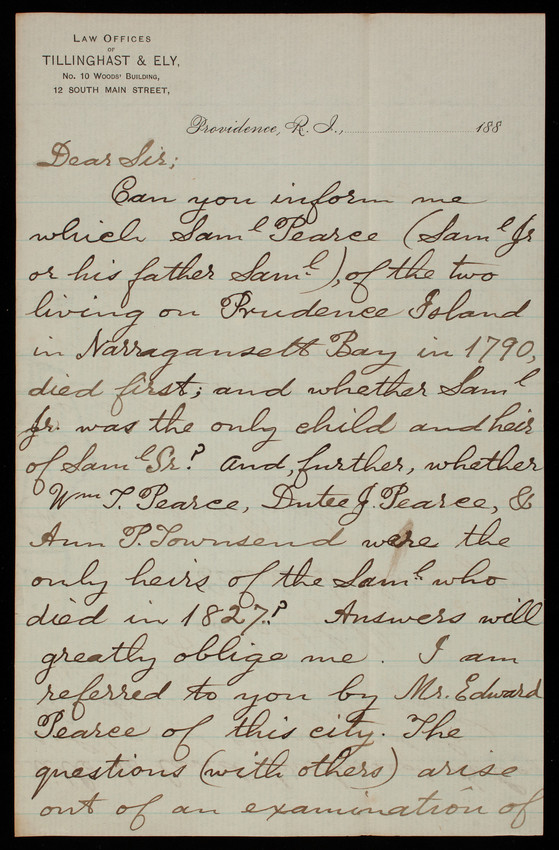 LAW OFFICES
OF
TILLINGHAST & ELY,
No. 10 WOODS' BUILDING,
12 SOUTH MAIN STREET,
Providence, R. I., 188
Dear Sir;
Can you inform me
which Saml Pearce (Saml Jr
or his father Saml.), of the two
living on Prudence Island
in Narragansett Bay in 1790,
died first; and whether Saml
Jr. was the only child and heir
of Saml Sr.? And, further, whether
Wm T. Pearce, Dutee J. Pearce, &
Ann P. Townsend were the
only heirs of the Saml. who
died in 1827.? Answers will
greatly oblige me. I am
referred to you by Mr. Edward
Pearce of this city. The
questions (with others) arise
out of an examination of